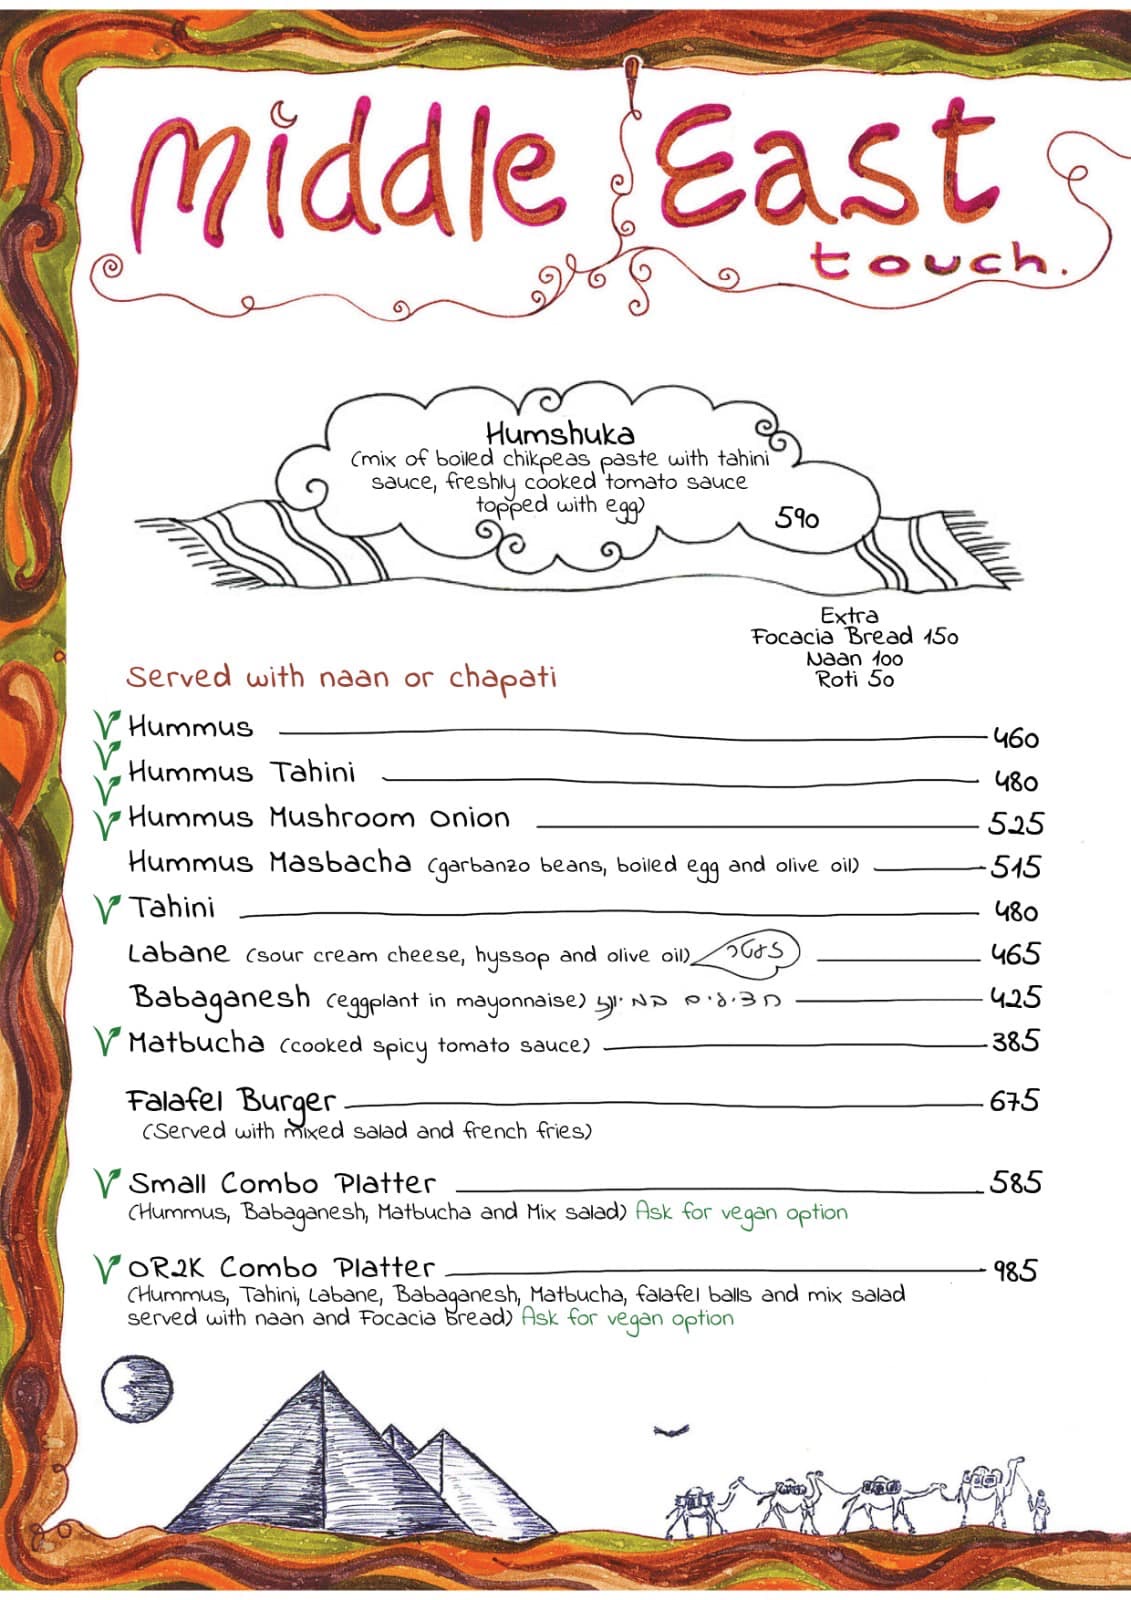 Middle East
touch.
Humshuka
(mix of boiled chikpeas paste with tahini
sauce, freshly cooked tomato sauce
topped with egg)
590
Extra
Focacia Bread 150
Naan 100
Roti 50
Served with naan or chapati
Hummus 460
Hummus Tahini 480
Hummus Mushroom Onion 525
Hummus Masbacha (garbanzo beans, boiled egg and olive oil) 515
Tahini 480
Labane (sour cream cheese, hyssop and olive oil) 465
Babaganesh (eggplant in mayonnaise) חצילים במיונז 425
Matbucha (cooked spicy tomato sauce) 385
Falafel Burger 675
(Served with mixed salad and french fries)
Small Combo Platter 585
(Hummus, Babaganesh, Matbucha and Mix salad) Ask for vegan option
OR2K Combo Platter 985
(Hummus, Tahini, Labane, Babaganesh, Matbucha, falafel balls and mix salad
served with naan and Focacia bread) Ask for vegan option